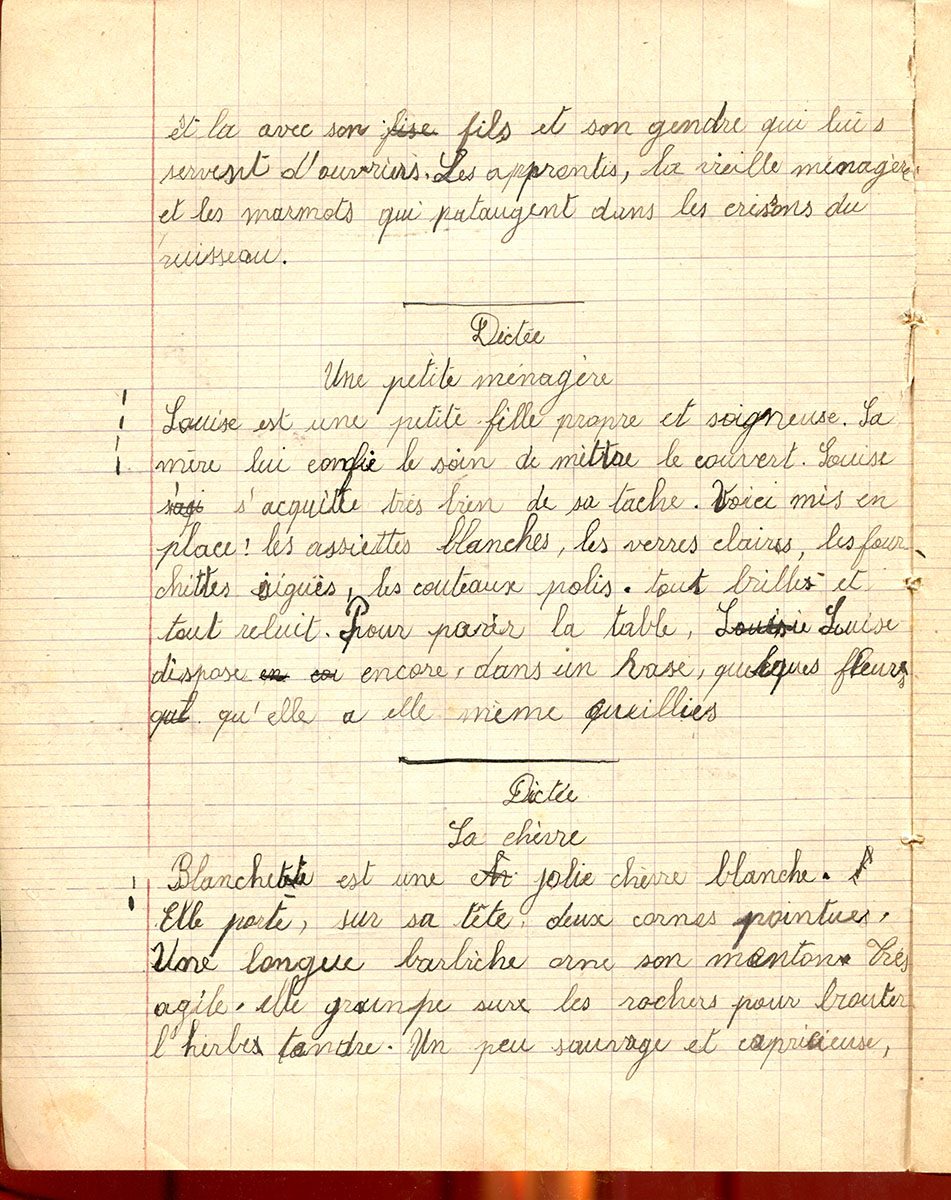 est la avec son fise fils et son gendre qui lui s
servent d'ouvriers. Les apprentis, la vieille ménagère
et les marmots qui pataugent dans les cressons du
ruisseau.
Dictée
Une petite ménagère
Louise est une petite fille propre et soigneuse. Sa
mère lui confie le soin de mettre le couvert. Louise
s'aqi s'acquitte très bien de sa tache. Voici mis en
place! les assiettes blanches, les verres clairs, les four
chettes aiguës, les couteaux polis. tout brille et
tout reluit. Pour parer la table, Louisie Louise
dispose en co encore, dans un vase, quelques fleurs
qul qu'elle a elle même cueillies
Dictée
La chèvre
Blanchette est une jolie chèvre blanche.
Elle porte, sur sa tête, deux cornes pointues.
Une longue barbiche orne son menton. Très
agile. elle grimpe sur les rochers pour brouter
l'herbe tendre. Un peu sauvage et capricieuse,